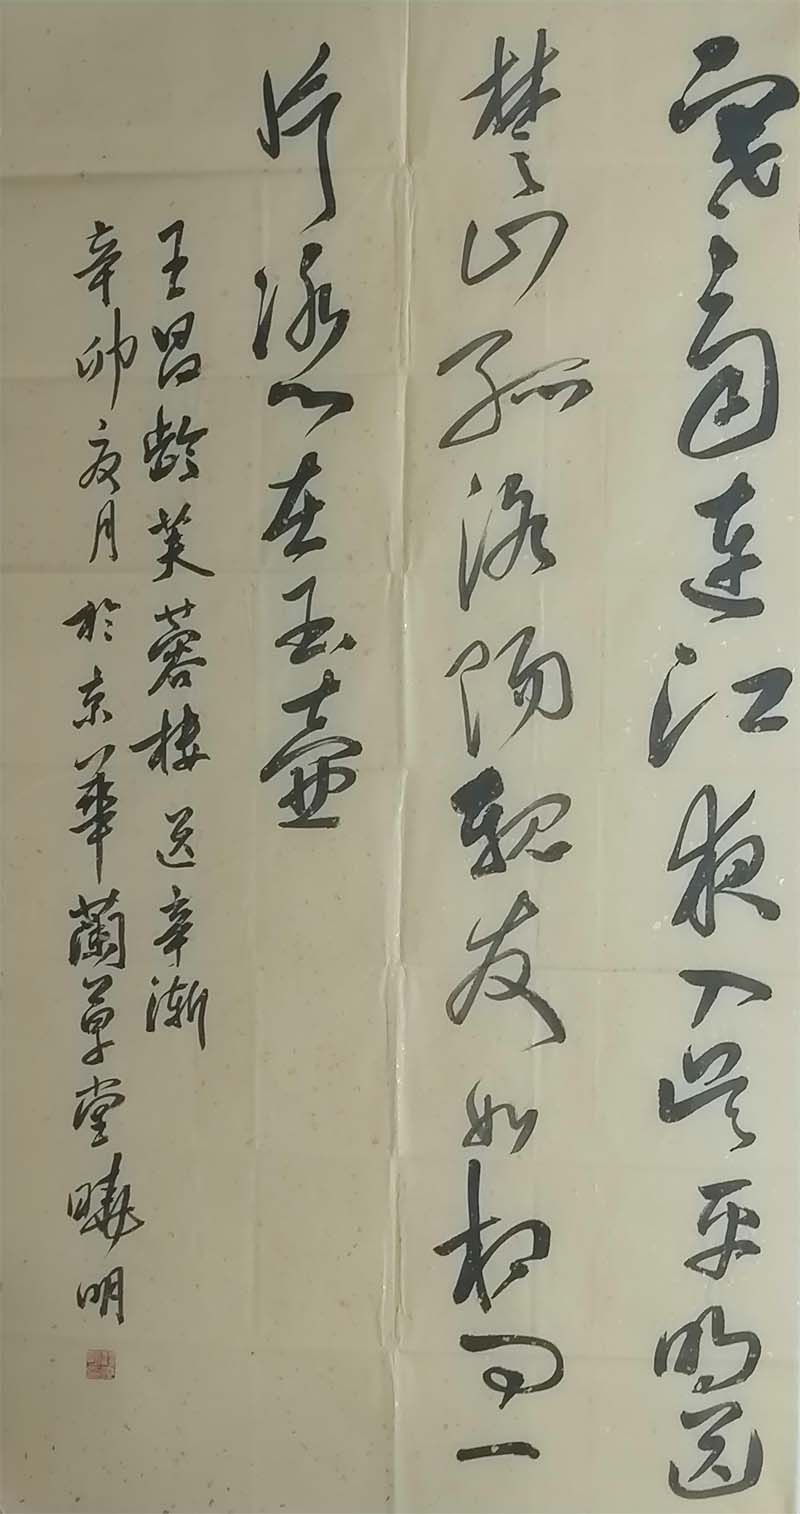 寒雨連江夜入吳平明送
楚山孤洛陽親友如相問一
片冰心在玉壺
王昌齡芙蓉樓送辛漸
辛卯夏月於京華蘭草堂曉明